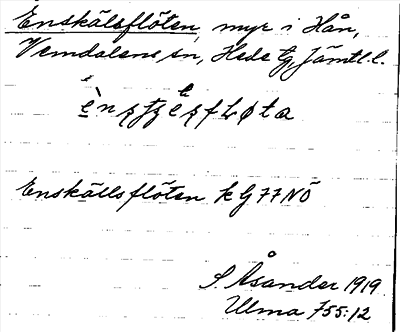 Enskälsflöten, myr i Hån,
Vemdalens sn, Hede tg, Jämtl. l.
Enskällsflöten k G 77 NÖ
S Åsander 1919.
Ulma 755:12